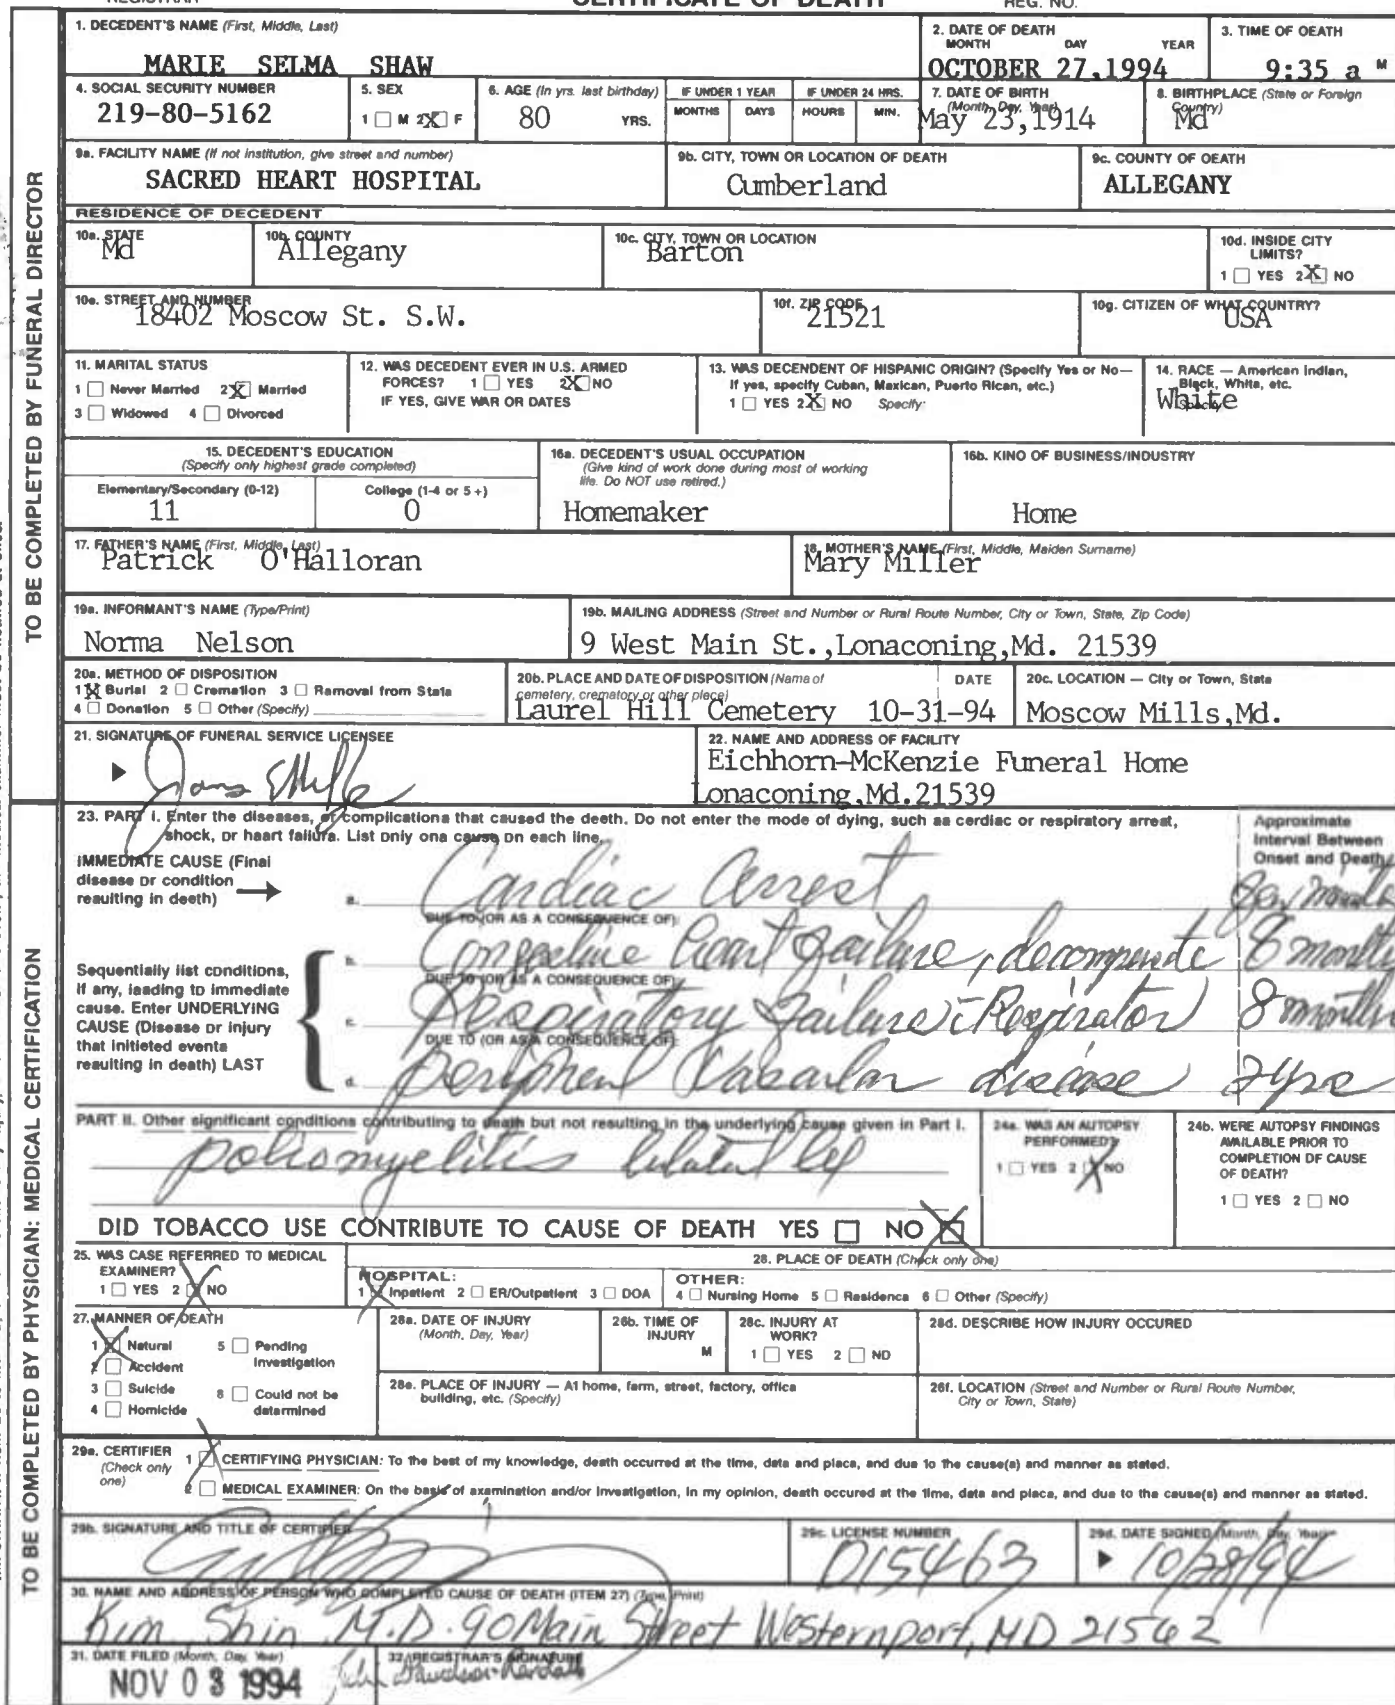 REGISTRAR CERTIFICATE OF DEATH REG. NO.
TO BE COMPLETED BY FUNERAL DIRECTOR
1. DECEDENT'S NAME (First, Middle, Last)
MARIE SELMA SHAW
2. DATE OF DEATH
MONTH DAY YEAR
OCTOBER 27,1994
3. TIME OF DEATH
9:35 a M
4. SOCIAL SECURITY NUMBER
219-80-5162
5. SEX
1 ☐ M 2☒ F
6. AGE (In yrs. last birthday)
80 YRS.
IF UNDER 1 YEAR
MONTHS DAYS
IF UNDER 24 HRS.
HOURS MIN.
7. DATE OF BIRTH
(Month, Day, Year)
May 23,1914
8. BIRTHPLACE (State or Foreign
Country)
Md
9a. FACILITY NAME (If not institution, give street and number)
SACRED HEART HOSPITAL
9b. CITY, TOWN OR LOCATION OF DEATH
Cumberland
9c. COUNTY OF DEATH
ALLEGANY
RESIDENCE OF DECEDENT
10a. STATE
Md
10b. COUNTY
Allegany
10c. CITY, TOWN OR LOCATION
Barton
10d. INSIDE CITY
LIMITS?
1 ☐ YES 2☒ NO
10e. STREET AND NUMBER
18402 Moscow St. S.W.
10f. ZIP CODE
21521
10g. CITIZEN OF WHAT COUNTRY?
USA
11. MARITAL STATUS
1 ☐ Never Married 2☒ Married
3 ☐ Widowed 4 ☐ Divorced
12. WAS DECEDENT EVER IN U.S. ARMED
FORCES? 1 ☐ YES 2☒ NO
IF YES, GIVE WAR OR DATES
13. WAS DECENDENT OF HISPANIC ORIGIN? (Specify Yes or No—
If yes, specify Cuban, Mexican, Puerto Rican, etc.)
1 ☐ YES 2☒ NO Specify:
14. RACE — American Indian,
Black, White, etc.
Specify
White
15. DECEDENT'S EDUCATION
(Specify only highest grade completed)
Elementary/Secondary (0-12)
11
College (1-4 or 5+)
0
16a. DECEDENT'S USUAL OCCUPATION
(Give kind of work done during most of working
life. Do NOT use retired.)
Homemaker
16b. KIND OF BUSINESS/INDUSTRY
Home
17. FATHER'S NAME (First, Middle, Last)
Patrick O'Halloran
18. MOTHER'S NAME (First, Middle, Maiden Surname)
Mary Miller
19a. INFORMANT'S NAME (Type/Print)
Norma Nelson
19b. MAILING ADDRESS (Street and Number or Rural Route Number, City or Town, State, Zip Code)
9 West Main St.,Lonaconing,Md. 21539
20a. METHOD OF DISPOSITION
1☒ Burial 2 ☐ Cremation 3 ☐ Removal from State
4 ☐ Donation 5 ☐ Other (Specify)
20b. PLACE AND DATE OF DISPOSITION (Name of DATE
cemetery, crematory or other place)
Laurel Hill Cemetery 10-31-94
20c. LOCATION — City or Town, State
Moscow Mills,Md.
21. SIGNATURE OF FUNERAL SERVICE LICENSEE
22. NAME AND ADDRESS OF FACILITY
Eichhorn-McKenzie Funeral Home
Lonaconing,Md.21539
TO BE COMPLETED BY PHYSICIAN: MEDICAL CERTIFICATION
23. PART I. Enter the diseases, or complications that caused the death. Do not enter the mode of dying, such as cardiac or respiratory arrest,
shock, or heart failure. List only one cause on each line.
Approximate
Interval Between
Onset and Death
IMMEDIATE CAUSE (Final
disease or condition
resulting in death) →
a. Cardiac arrest
DUE TO (OR AS A CONSEQUENCE OF):
Sequentially list conditions,
if any, leading to immediate
cause. Enter UNDERLYING
CAUSE (Disease or injury
that initiated events
resulting in death) LAST
b. Congestive heart failure, decompensate 8 months
DUE TO (OR AS A CONSEQUENCE OF):
c. Respiratory failure c̄ Respirator 8 months
DUE TO (OR AS A CONSEQUENCE OF):
d. peripheral vascular disease 2 yrs
PART II. Other significant conditions contributing to death but not resulting in the underlying cause given in Part I.
poliomyelitis bilateral leg
24a. WAS AN AUTOPSY
PERFORMED?
1 ☐ YES 2 ☒ NO
24b. WERE AUTOPSY FINDINGS
AVAILABLE PRIOR TO
COMPLETION OF CAUSE
OF DEATH?
1 ☐ YES 2 ☐ NO
DID TOBACCO USE CONTRIBUTE TO CAUSE OF DEATH YES ☐ NO ☒
25. WAS CASE REFERRED TO MEDICAL
EXAMINER?
1 ☐ YES 2 ☒ NO
26. PLACE OF DEATH (Check only one)
HOSPITAL:
1 ☒ Inpatient 2 ☐ ER/Outpatient 3 ☐ DOA
OTHER:
4 ☐ Nursing Home 5 ☐ Residence 6 ☐ Other (Specify)
27. MANNER OF DEATH
1 ☒ Natural 5 ☐ Pending
Investigation
2 ☐ Accident
3 ☐ Suicide 6 ☐ Could not be
determined
4 ☐ Homicide
28a. DATE OF INJURY
(Month, Day, Year)
28b. TIME OF
INJURY
M
28c. INJURY AT
WORK?
1 ☐ YES 2 ☐ NO
28d. DESCRIBE HOW INJURY OCCURED
28e. PLACE OF INJURY — At home, farm, street, factory, office
building, etc. (Specify)
28f. LOCATION (Street and Number or Rural Route Number,
City or Town, State)
29a. CERTIFIER
(Check only
one)
1 ☒ CERTIFYING PHYSICIAN: To the best of my knowledge, death occurred at the time, date and place, and due to the cause(s) and manner as stated.
2 ☐ MEDICAL EXAMINER: On the basis of examination and/or investigation, in my opinion, death occured at the time, date and place, and due to the cause(s) and manner as stated.
29b. SIGNATURE AND TITLE OF CERTIFIER
29c. LICENSE NUMBER
D15463
29d. DATE SIGNED (Month, Day, Year)
10/28/94
30. NAME AND ADDRESS OF PERSON WHO COMPLETED CAUSE OF DEATH (ITEM 27) (Type, Print)
Kim Shin M.D. 90 Main Street Westernport, MD 21562
31. DATE FILED (Month, Day, Year)
NOV 03 1994
32. REGISTRAR'S SIGNATURE